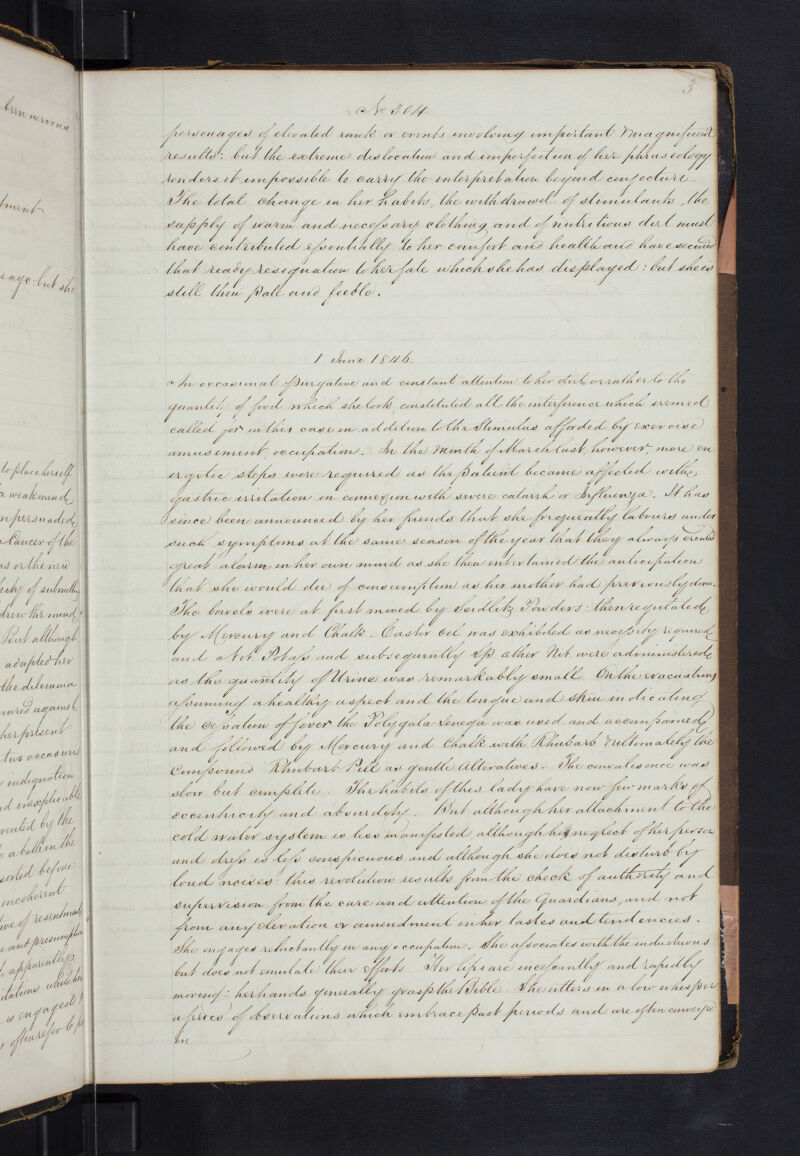 been nervous
tment
s ago: but she
to place herself
a weak mind
n persuaded
Cancer of the
is or the new
of submitting
drew the mind
But although
adapted her
the dilemma
ured against
her present
two occasions
indignation
d inexplicable
vented by the
a bath in the
sorted before
incoherent
ive of resentment
e and presumption
apparently
itations while her
is engaged
often refer to
3
No 304
personages of elevated rank or events involving important & magnificent
results: but the extreme dislocation and imperfection of her phraseology
renders it impossible to carry the interpretation beyond conjecture -
The total change in her habits, the withdrawal of stimulants, the
supply of warm and necessary clothing and of nutritious diet must
have contributed essentially to her comfort and health and have secured
that ready resignation to her fate which she has displayed: but she is
still thin pale and feeble.
1 June 1846.
An occasional purgative and constant attention to her diet or rather to the
quantity of food which she took, constituted all the interference which seemed
called for in this case in addition to the Stimulus afforded by exercise
amusement, occupation. In the Month of March last, however, more en
ergetic steps were required as the patient became affected with
gastric irritation in connexion with severe catarrh or Influenza. It has
since been announced by her friends that she frequently labours under
such symptoms at the same season of the year that they always created
great alarm in her own mind as she then entertained the anticipation
that she would die of consumption as her mother had previously done.
The bowels were at first moved by Seidlitz Powders: then regulated
by Mercury and Chalk. Castor oil was exhibited as necessity required
and Nit. Potass and subsequently Sp ather Nit. were administered
as the quantity of Urine was remarkably small. On the evacuations
assuming a healthy aspect and the tongue and skin indicating
the cessation of fever the Polygala Senega was used and accompanied
and followed by Mercury and Chalk with Rhubarb & ultimately the
Compound Rhubarb Pill as gentle alteratives. The convalescence was
slow but complete. The habits of this lady have now few marks of
eccentricity and absurdity. But although her attachment to the
cold water system is less manifested although her neglect of her person
and dress is less conspicuous and although she does not disturb by
loud noises: this revolution results from the check of authority and
supervision from the care and attention of the Guardians, and not
from any elevation or amendment in her tastes and tendencies -
She engages reluctantly in any occupation. She associates with the industrious
but does not emulate their efforts Her lips are incessantly and rapidly
moving: her hands generally grasp the Bible. She utters in a low whisper
a series of observations which embrace past periods and are often conveyed
in